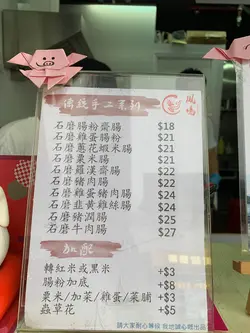 石磨腸粉齋腸 $18
石磨雞蛋腸粉 $21
石磨蔥花蝦米腸 $21
石磨粟米腸 $21
石磨羅漢齋腸 $22
石磨豬肉腸 $22
石磨雞蛋豬腸 $24
石磨韭黃雞絲腸 $24
石磨豬潤腸 $25
石磨牛肉腸 $27
加配
轉紅米或黑米 +$3
腸粉加底 +$8
粟米/加菜/雞蛋/菜脯 +$3
蟲草花 +$5